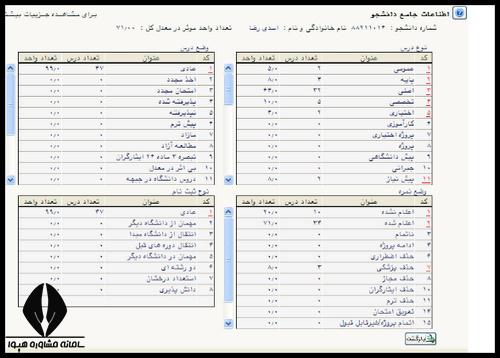 اطلاعات جامع دانشجو
برای مشاهده جزییات بیشت
شماره دانشجو : ۸۸۲۱۱۰۱۴ نام خانوادگی و نام : اسدی رضا تعداد واحد موثر در معدل کل : ۷۱/۰۰
نوع درس
کد عنوان تعداد درس تعداد واحد
۱ عمومی ۲ ۵/۰
۲ پایه ۳ ۸/۰
۳ اصلی ۳۲ ۶۴/۰
۴ تخصصی ۵ ۱۰/۰
۵ اختیاری ۲ ۳/۰
۶ کارآموزی ۰ ۰/۰
۷ پروژه ۰ ۰/۰
۸ پروژه اختیاری ۰ ۰/۰
۹ پیش دانشگاهی ۰ ۰/۰
۱۰ جبرانی ۰ ۰/۰
۱۱ پیش نیاز ۲ ۸/۰
وضع درس
کد عنوان تعداد درس تعداد واحد
۱ عادی ۴۷ ۹۹/۰
۲ اخذ مجدد ۰ ۰/۰
۳ امتحان مجدد ۰ ۰/۰
۴ پذیرفته شده ۰ ۰/۰
۵ نپذیرفته ۰ ۰/۰
۶ پیش ترم ۰ ۰/۰
۷ مازاد ۰ ۰/۰
۸ مطالعه آزاد ۰ ۰/۰
۹ تبصره ۳ ماده ۲۴ ایثارگران ۰ ۰/۰
۱۰ بی اثر در معدل ۰ ۰/۰
۱۱ دروس دانشگاه در جبهه ۰ ۰/۰
وضع نمره
کد عنوان تعداد درس تعداد واحد
۱ اعلام نشده ۱۰ ۲۰/۰
۲ اعلام شده ۳۴ ۷۱/۰
۳ ناتمام ۰ ۰/۰
۴ ادامه پروژه ۰ ۰/۰
۶ حذف اضطراری ۰ ۰/۰
۷ حذف پزشکی ۳ ۸/۰
۸ حذف مجاز ۰ ۰/۰
حذف ایثارگران ۰ ۰/۰
۱۱ حذف ترم ۰ ۰/۰
۱۴ تعویق امتحان ۰ ۰/۰
۱۵ اتمام پروژه/غیرقابل قبول ۰ ۰/۰
نوع ثبت نام
کد عنوان تعداد درس تعداد واحد
۱ عادی ۴۷ ۹۹/۰
۲ مهمان از دانشگاه دیگر ۰ ۰/۰
۳ انتقال از دانشگاه مبدا ۰ ۰/۰
۴ انتقال دوره های قبل ۰ ۰/۰
۵ مهمان در دانشگاه دیگر ۰ ۰/۰
۶ دو رشته ای ۰ ۰/۰
۷ استعداد درخشان ۰ ۰/۰
۸ دانش پذیری ۰ ۰/۰
بازگشت
سامانه مشاوره هیوا